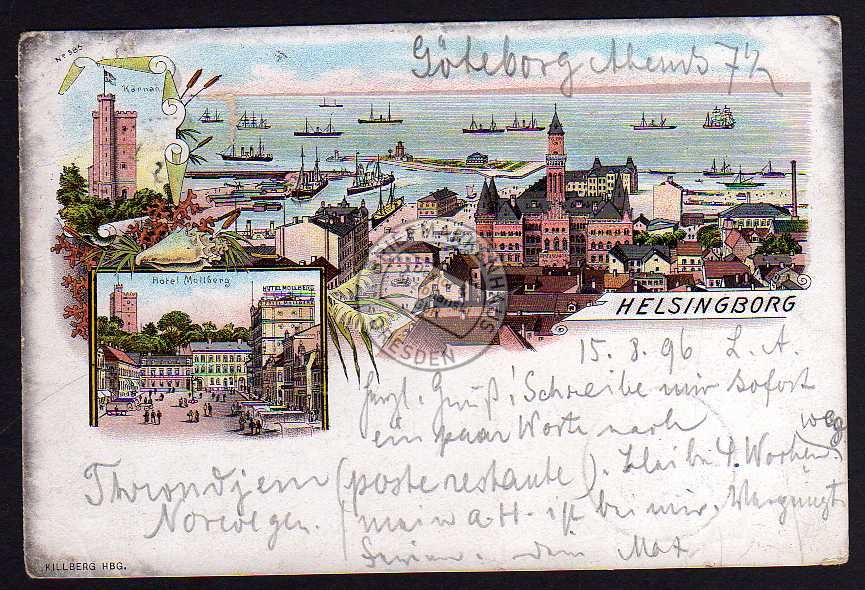 No 565
Göteborg Abends 7½
Kärnan
Hotel Mollberg
HOTEL MOLLBERG
HELSINGBORG
DRESDEN
15. 8. 96 L. A.
Herzl. Gruß! Schreibe mir sofort
ein paar Worte nach
Throndjem (poste restante). Bleibe 4 Wochen weg
Norwegen. mein a. H. ist bei mir. Vergnügte
Ferien. Dein Max
KILLBERG HBG.